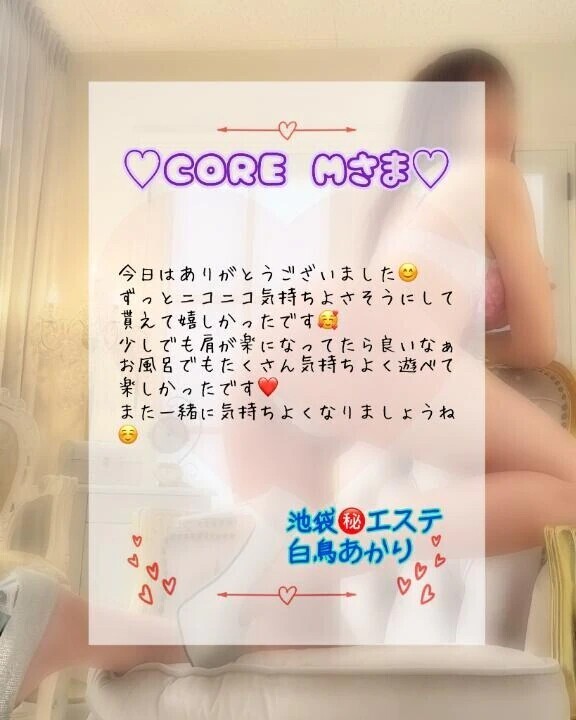 ♡CORE Mさま♡
今日はありがとうございました😊
ずっとニコニコ気持ちよさそうにして
貰えて嬉しかったです🥰
少しでも肩が楽になってたら良いなぁ
お風呂でもたくさん気持ちよく遊べて
楽しかったです❤️
また一緒に気持ちよくなりましょうね
☺️
池袋㊙️エステ
白鳥あかり